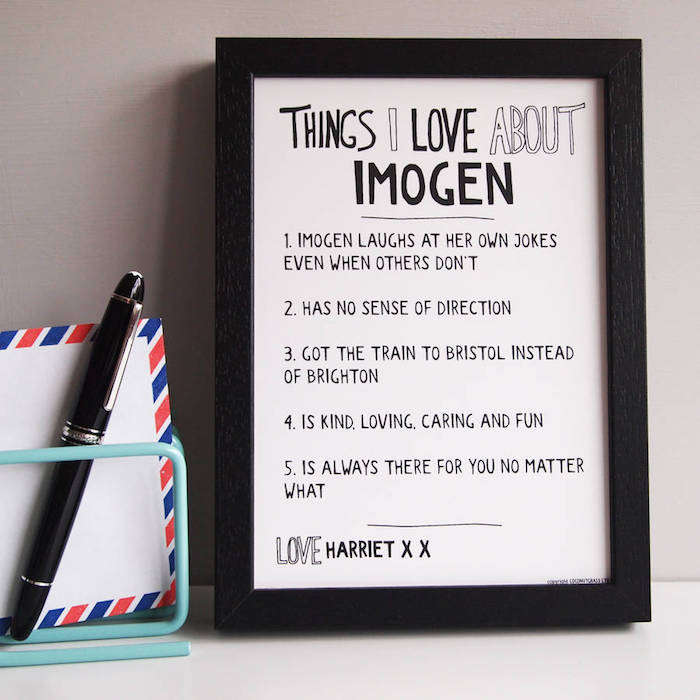 THINGS I LOVE ABOUT
IMOGEN
1. IMOGEN LAUGHS AT HER OWN JOKES
EVEN WHEN OTHERS DON'T
2. HAS NO SENSE OF DIRECTION
3. GOT THE TRAIN TO BRISTOL INSTEAD
OF BRIGHTON
4. IS KIND, LOVING, CARING AND FUN
5. IS ALWAYS THERE FOR YOU NO MATTER
WHAT
LOVE HARRIET X X
COPYRIGHT